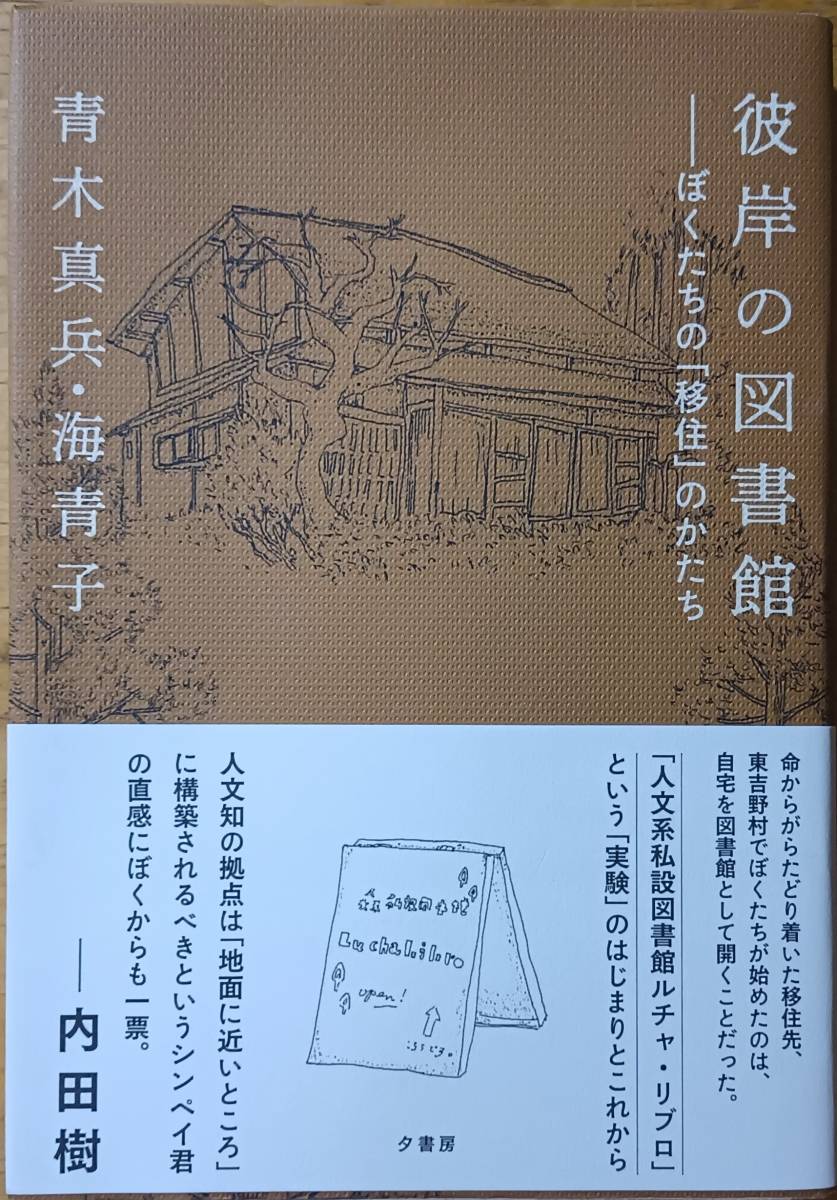 彼岸の図書館
──ぼくたちの「移住」のかたち
青木真兵・海青子
命からがらたどり着いた移住先、
東吉野村でぼくたちが始めたのは、
自宅を図書館として開くことだった。
「人文系私設図書館ルチャ・リブロ」
という「実験」のはじまりとこれから
Lucha Libro
open!
人文知の拠点は「地面に近いところ」
に構築されるべきというシンペイ君
の直感にぼくからも一票。
──内田樹
夕書房